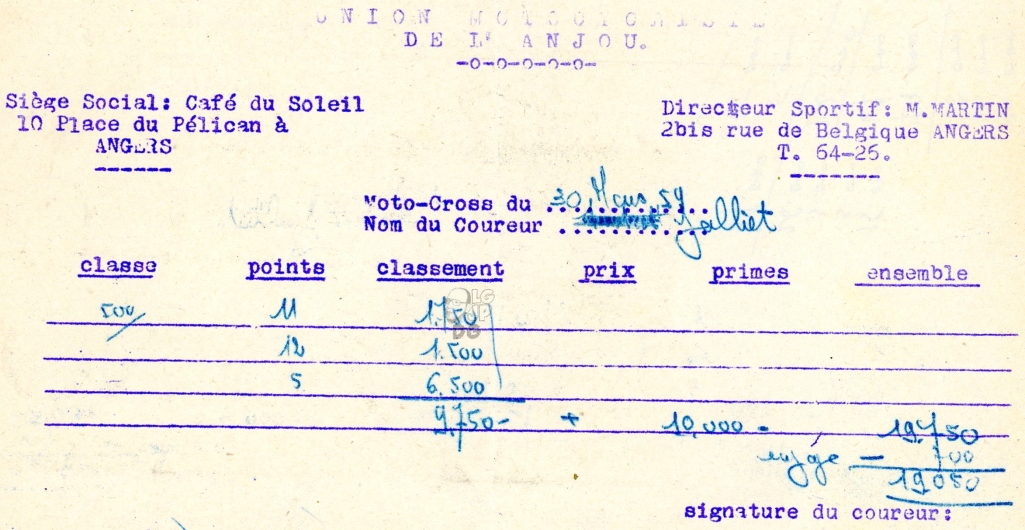 UNION MOTOCYCLISTE
DE L'ANJOU.
-o-o-o-o-o-
Siège Social: Café du Soleil
10 Place du Pélican à
ANGERS
Directeur Sportif: M.MARTIN
2bis rue de Belgique ANGERS
T. 64-26.
Moto-Cross du 30 Mars 59
Nom du Coureur Jalliet
classe points classement prix primes ensemble
500 11 1.750
12 1.500
5 6.500
9.750- + 10,000 - 19.750
- 700
19050
signature du coureur: